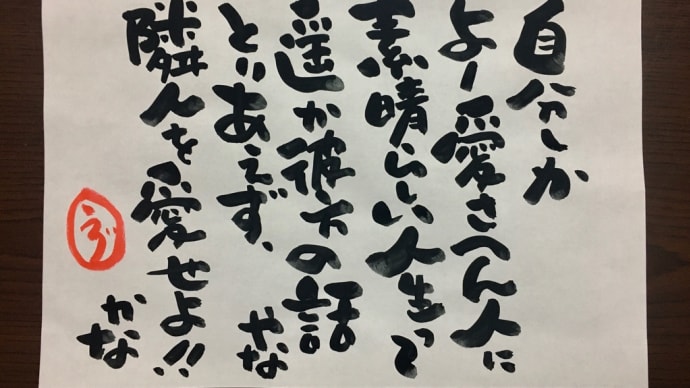 自分しか
よー愛さへん人に
素晴らしい人生って
遥か彼方の話
やな
とりあえず、
隣人を愛せよ!!
かな